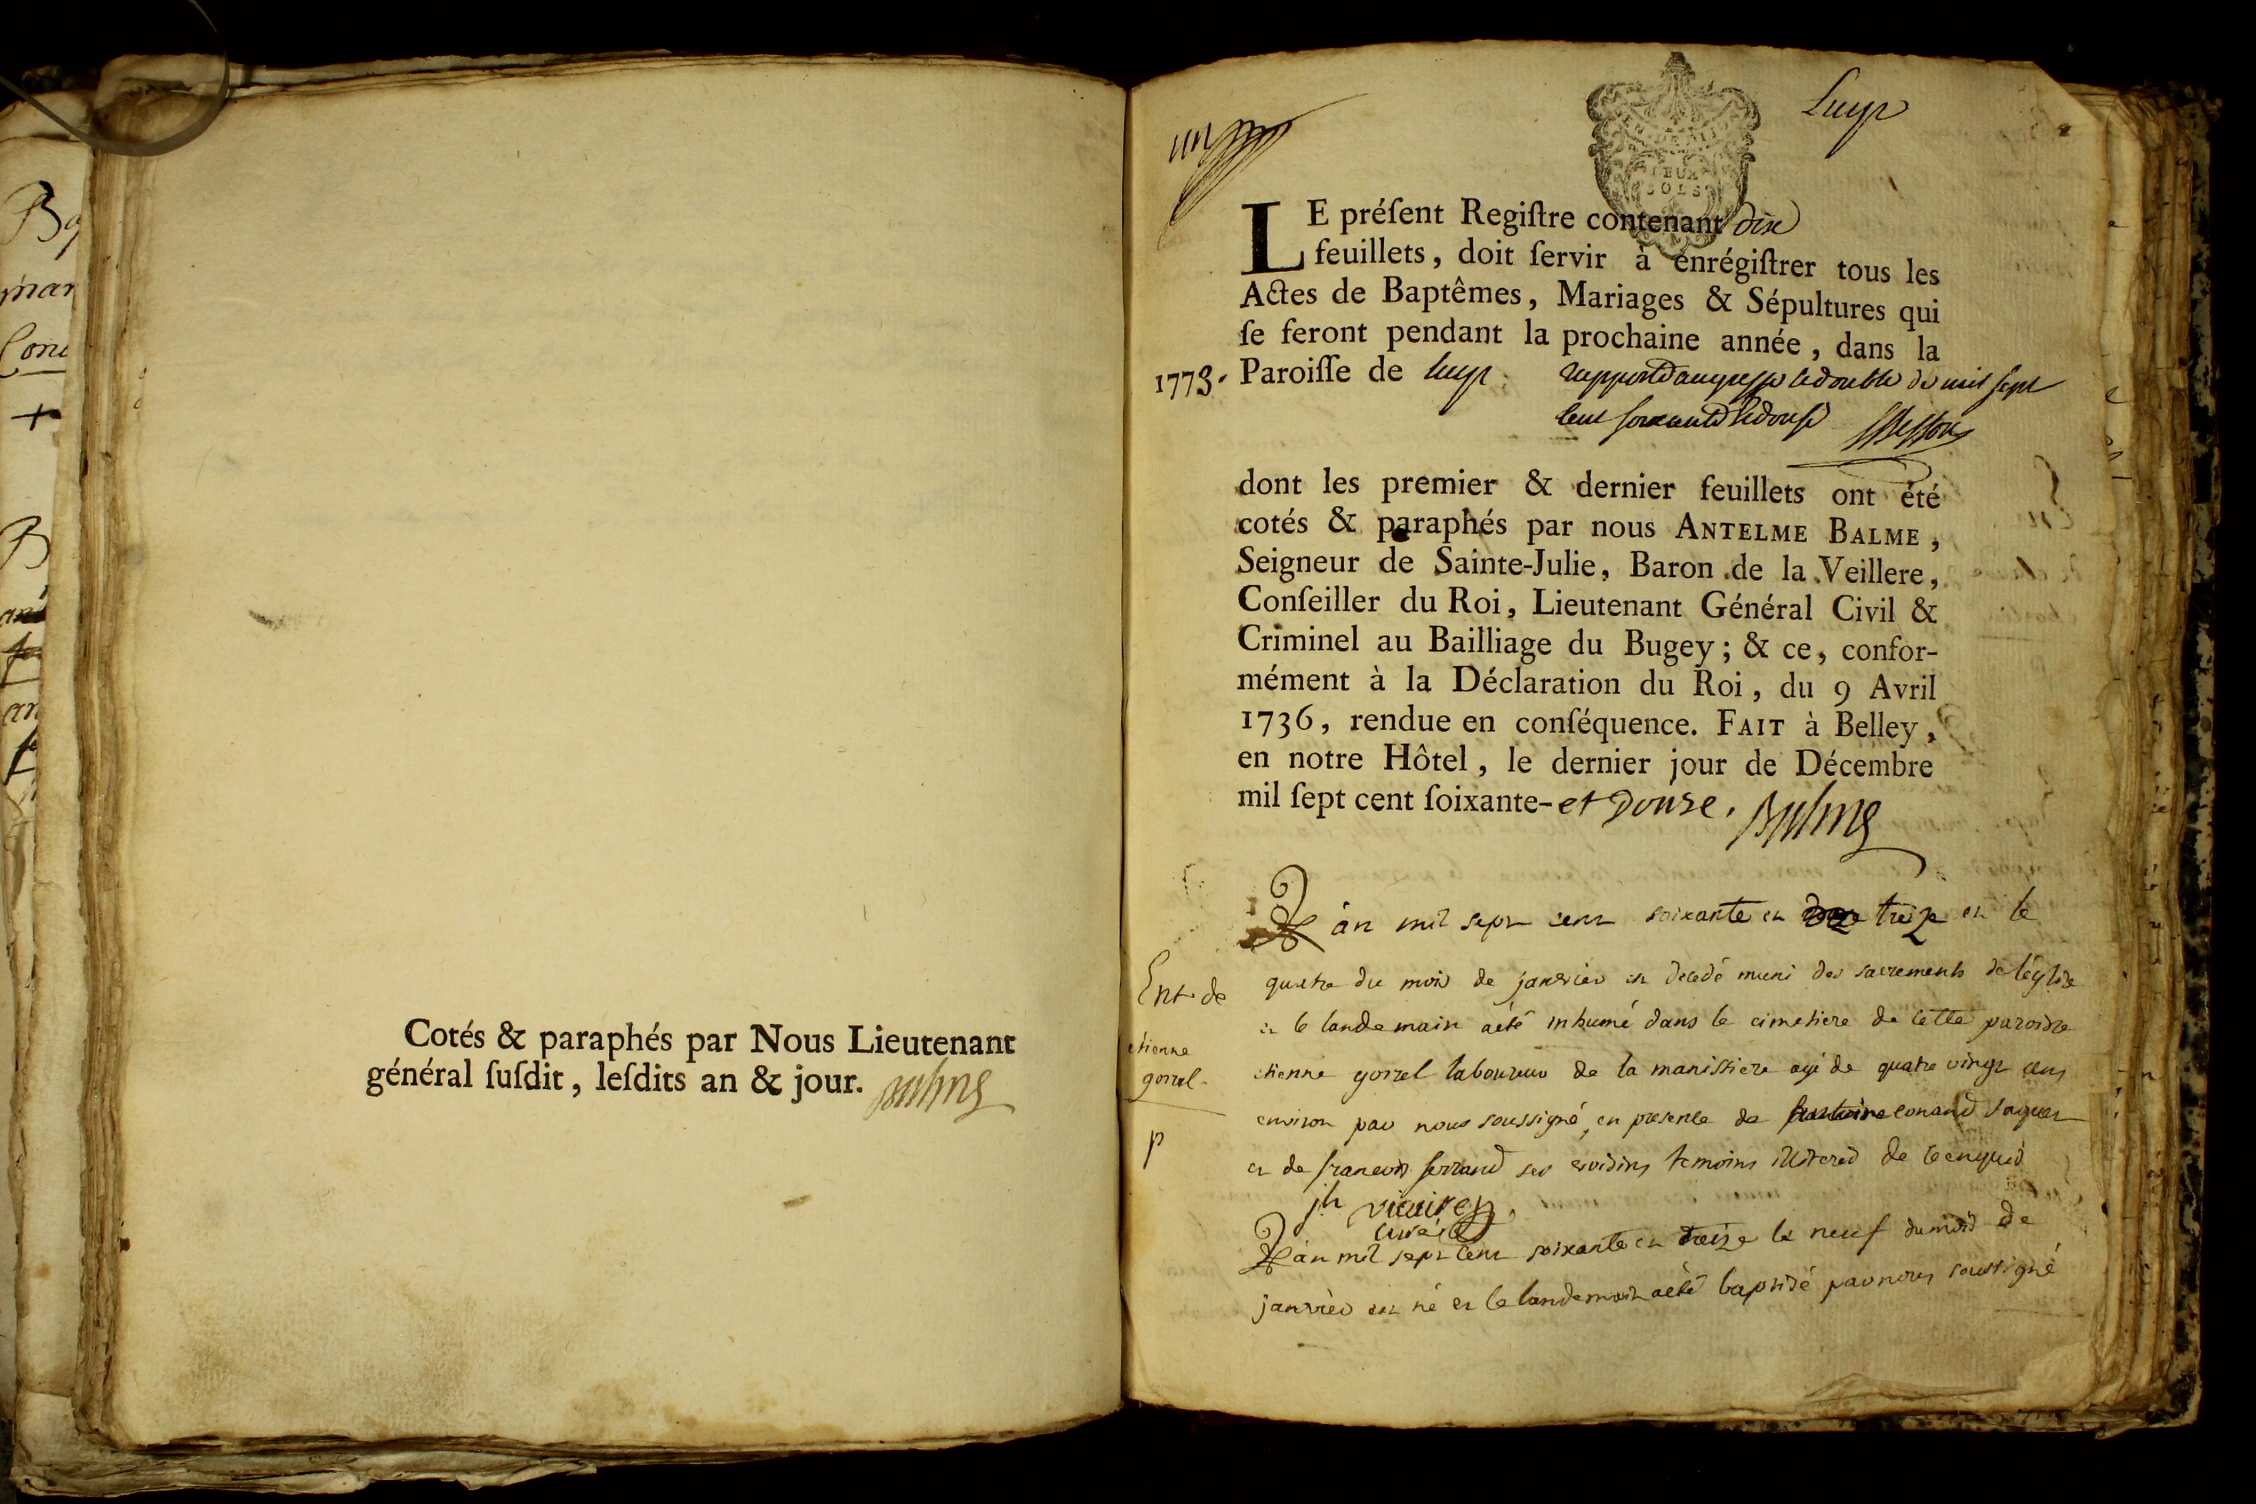 Cotés & paraphés par Nous Lieutenant
général ſuſdit, leſdits an & jour. Balme
un
Luyr
DEUX
SOLS
LE préſent Regiſtre contenant dix
feuillets, doit ſervir à enrégiſtrer tous les
Actes de Baptêmes, Mariages & Sépultures qui
ſe feront pendant la prochaine année, dans la
1773. Paroiſſe de luyr rapporté au greffe le double de mil sept
cent soixante et douse
dont les premier & dernier feuillets ont été
cotés & paraphés par nous ANTELME BALME,
Seigneur de Sainte-Julie, Baron de la Veillere,
Conſeiller du Roi, Lieutenant Général Civil &
Criminel au Bailliage du Bugey; & ce, confor-
mément à la Déclaration du Roi, du 9 Avril
1736, rendue en conſéquence. FAIT à Belley,
en notre Hôtel, le dernier jour de Décembre
mil ſept cent ſoixante- et Douze. Balme
L'an mil sept cent soixante et treize et le
quatre du mois de janvier est decedé muni des sacrements de l'église
et le landemain aété inhumé dans le cimetiere de cette paroisse
etienne gorrel laboureur de la manissiere agé de quatre vingt ans
environ par nous soussigné, en presence de conand
et de francois ferrand ses voisins temoins illiterés de ce enquis
Ent. de
etienne
gorrel.
p
jh vicaire
curé
L'an mil sept cent soixante et treize le neuf du mois de
janvier est né et le landemain aété baptisé par nous soussigné